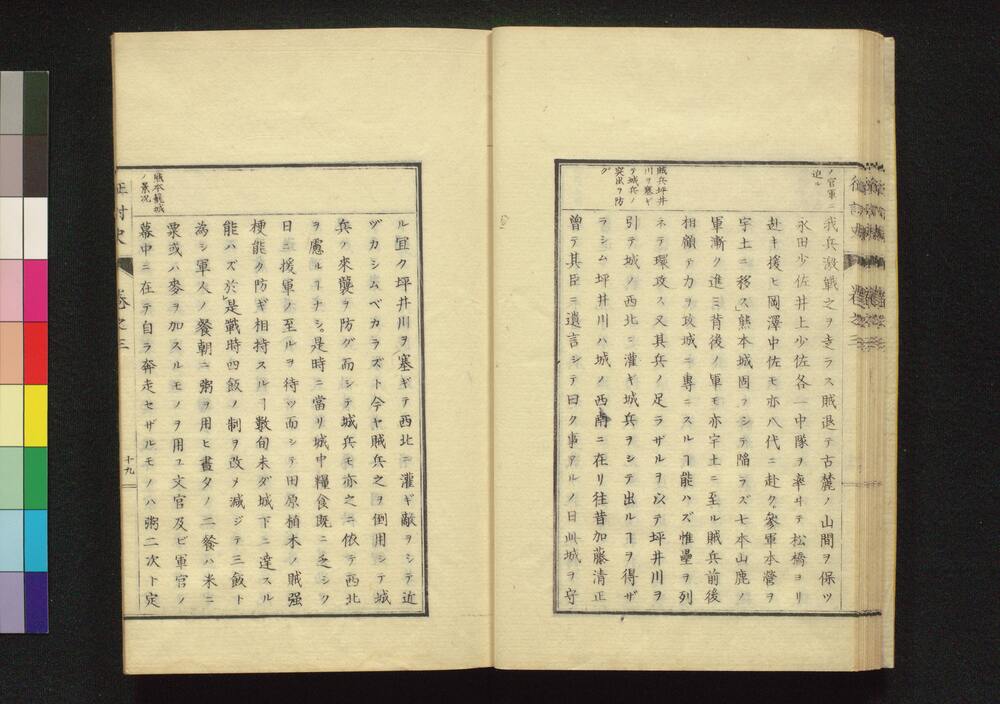 ノ官軍ニ
迫ル
我兵激戦之ヲ走ラス賊退テ古麓ノ山間ヲ保ツ
永田少佐井上少佐各一中隊ヲ率ヰテ松橋ヨリ
赴キ援ヒ岡澤中佐モ亦八代ニ赴ク。參軍本營ヲ
宇土ニ移ス」熊本城固ヲシテ陥ラズ七本山鹿ノ
軍漸ク進ミ背後ノ軍モ亦宇土ニ至ル賊兵前後
相顧テ力ヲ攻城ニ專ニスルヿ能ハズ惟壘ヲ列
賊兵坪井
川ヲ塞ギ
テ城兵ノ
突出ヲ防
グ
ネテ環攻ス又其兵ノ足ラザルヲ以テ坪井川ヲ
引テ城ノ西北ニ灌ギ城兵ヲシテ出ルヿヲ得ザ
ラシム坪井川ハ城ノ西南ニ在リ往昔加藤清正
曾テ其臣ニ遺言シテ曰ク事アルノ日此城ヲ守
ル宜ク坪井川ヲ塞ギテ西北ニ灌ギ敵ヲシテ近
ヅカシムベカラズト今ヤ賊兵之ヲ倒用シテ城
兵ノ來襲ヲ防グ而シテ城兵モ亦之ニ依テ西北
ヲ慮ルヿナシ。是時ニ當リ城中糧食既ニ乏シク
日ニ援軍ノ至ルヲ待ツ而シテ田原植木ノ賊强
梗能ク防ギ相持スルヿ數旬未ダ城下ニ達スル
能ハズ於」是戰時四飯ノ制ヲ改メ減ジテ三飯ト
為シ軍人ノ餐朝ニ粥ヲ用ヒ晝夕ノ二餐ハ米ニ
粟或ハ麥ヲ加スルモノヲ用ユ文官及ビ軍官ノ
籠城
ノ景況
幕中ニ在テ自ラ奔走セザルモノハ粥二次ト定
征討史
卷之三
十九